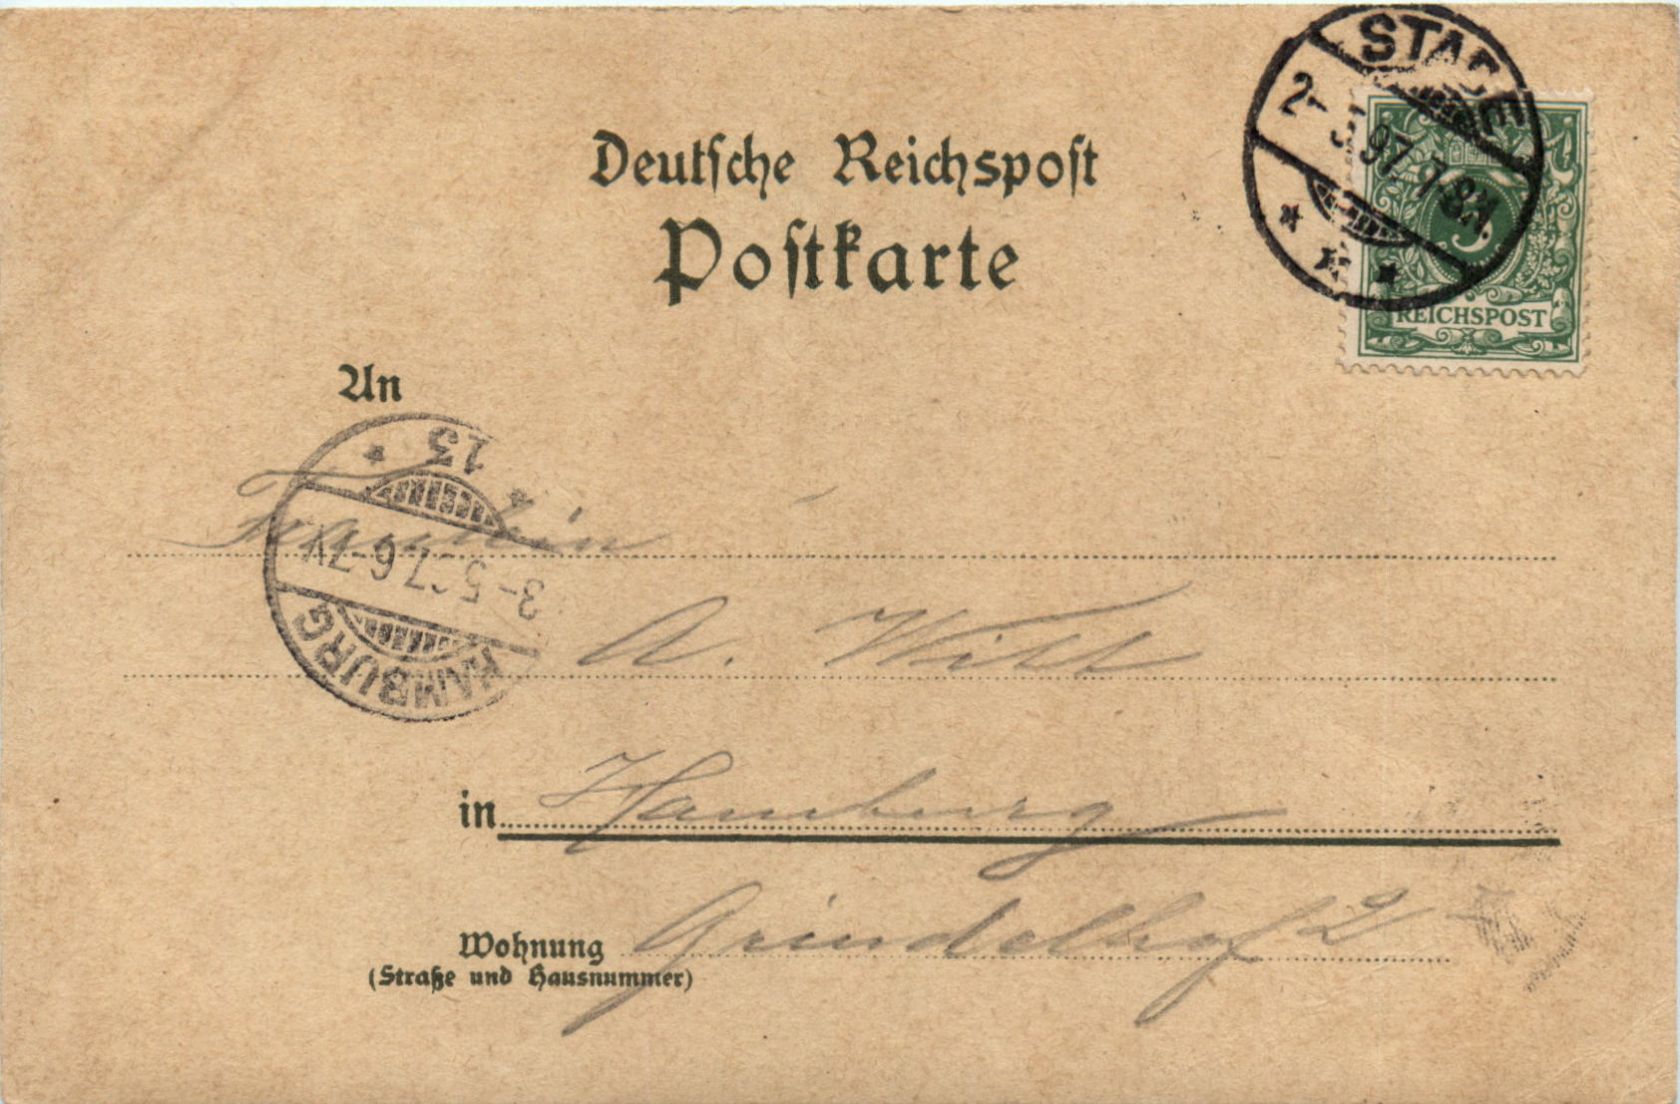 STADE
2 5 97. 7-8N.
5
REICHSPOST
Deutsche Reichspost
Postkarte
An
13
3-5 97 6-7V
HAMBURG
Fräulein
A. Witt
in Hamburg
Wohnung Grindelhof 2
(Straße und Hausnummer)